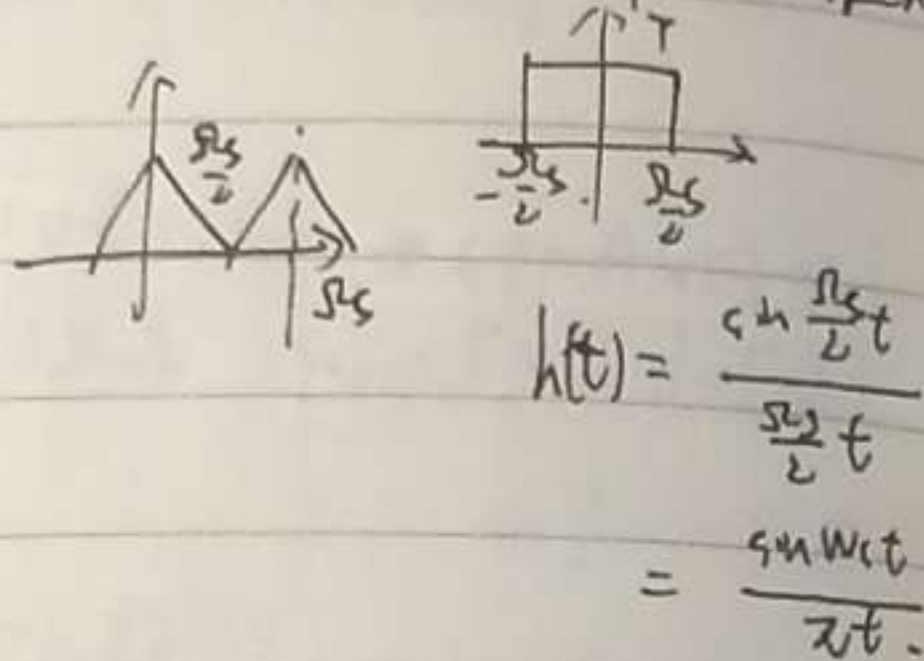 T
Ωs/2
-Ωs/2
Ωs/2
Ωs
h(t) = sin Ωs/2 t / Ωs/2 t
= sin Wct / πt.